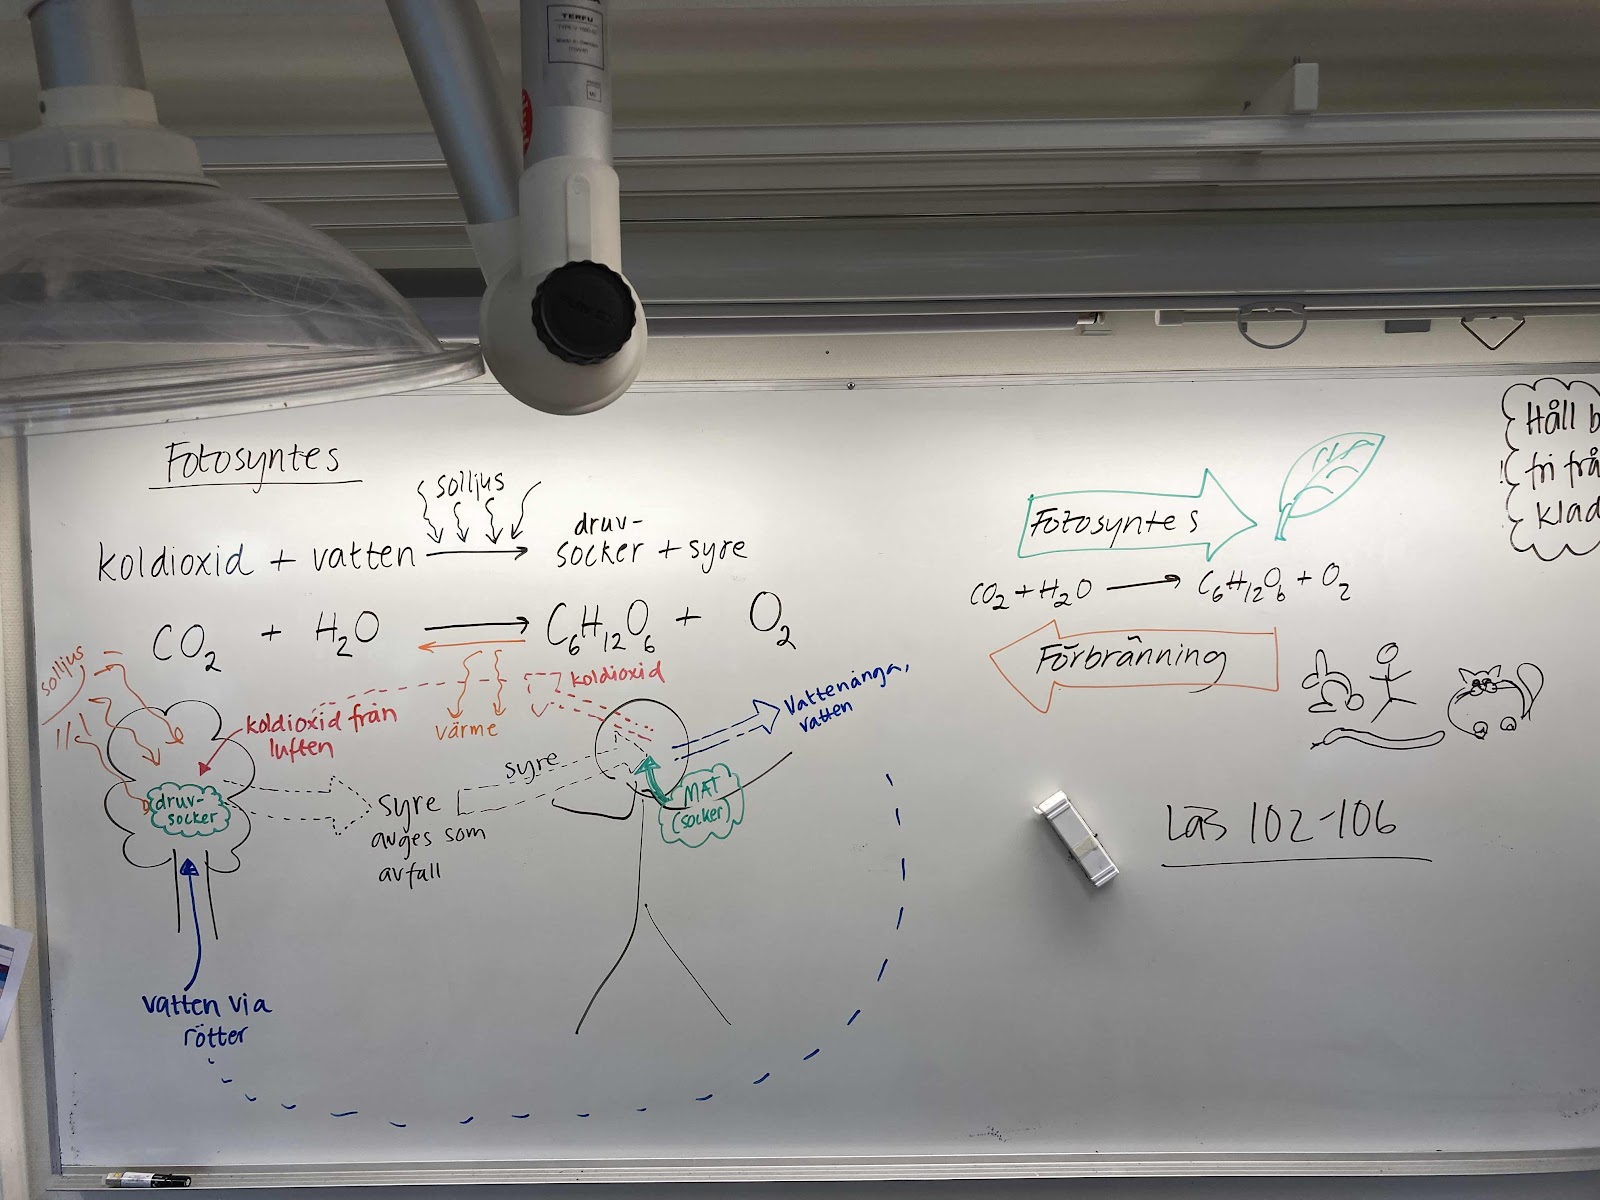 TERFU
Fotosyntes
solljus
koldioxid + vatten → druv-
socker + syre
CO2 + H2O → C6H12O6 + O2
solljus
koldioxid från
luften
värme
koldioxid
Vattenånga,
vatten
druv-
socker
syre
avges som
avfall
syre
MAT
(socker)
vatten via
rötter
Fotosyntes
CO2 + H2O → C6H12O6 + O2
Förbränning
Läs 102-106
Håll b
fri frå
klad